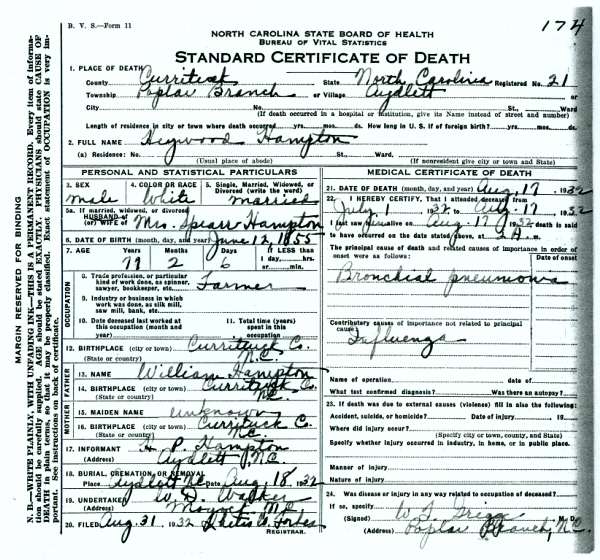 B. V. S.—Form 11
174
NORTH CAROLINA STATE BOARD OF HEALTH
BUREAU OF VITAL STATISTICS
STANDARD CERTIFICATE OF DEATH
MARGIN RESERVED FOR BINDING
N. B.—WRITE PLAINLY, WITH UNFADING INK—THIS IS A PERMANENT RECORD. Every item of information should be carefully supplied. AGE should be stated EXACTLY. PHYSICIANS should state CAUSE OF DEATH in plain terms, so that it may be properly classified. Exact statement of OCCUPATION is very important. See instructions on back of certificate.
1. PLACE OF DEATH
County Currituck State North Carolina Registered No. 21
Township Poplar Branch or Village Aydlett or
City No. St., Ward
(If death occurred in a hospital or institution, give its Name instead of street and number)
Length of residence in city or town where death occurred yrs. mos. ds. How long in U. S. if of foreign birth? yrs. mos. ds.
2. FULL NAME Heywood Hampton
(a) Residence: No. St., Ward.
(Usual place of abode) (If nonresident give city or town and State)
PERSONAL AND STATISTICAL PARTICULARS
3. SEX male
4. COLOR OR RACE White
5. Single, Married, Widowed, or Divorced (write the word) married
5a. If married, widowed, or divorced
HUSBAND of
(or) WIFE of Mrs. Hampton
6. DATE OF BIRTH (month, day, and year) June 12, 1855
7. AGE Years Months Days If LESS than
1 day, hrs.
or min.
77 2 6
OCCUPATION
8. Trade, profession, or particular kind of work done, as spinner, sawyer, bookkeeper, etc. Farmer
9. Industry or business in which work was done, as silk mill, saw mill, bank, etc.
10. Date deceased last worked at this occupation (month and year)
11. Total time (years) spent in this occupation
12. BIRTHPLACE (city or town) Currituck Co.
(State or country) N.C.
FATHER
13. NAME William Hampton
14. BIRTHPLACE (city or town) Currituck Co.
(State or country) N.C.
MOTHER
15. MAIDEN NAME unknown
16. BIRTHPLACE (city or town) Currituck Co.
(State or country) N.C.
17. INFORMANT H. P. Hampton
(Address) Aydlett, N.C.
18. BURIAL, CREMATION, OR REMOVAL
Place Aydlett N.C. Date Aug 18, 1932
19. UNDERTAKER W. D. Walker
(Address) Moyock N.C.
20. FILED Aug. 31, 1932 Forbes
REGISTRAR.
MEDICAL CERTIFICATE OF DEATH
21. DATE OF DEATH (month, day, and year) Aug. 17, 1932
22. I HEREBY CERTIFY, That I attended deceased from
July 1 1932 to Aug 17 1932
I last saw alive on Aug 17, 1932 death is said
to have occurred on the date stated above, at A. m.
The principal cause of death and related causes of importance in order of onset were as follows:
Date of onset
Bronchial pneumonia
Contributory causes of importance not related to principal cause:
Influenza
Name of operation date of
What test confirmed diagnosis? Was there an autopsy?
23. If death was due to external causes (violence) fill in also the following:
Accident, suicide, or homicide? Date of injury 19
Where did injury occur?
(Specify city or town, county, and State)
Specify whether injury occurred in industry, in home, or in public place.
Manner of injury
Nature of injury
24. Was disease or injury in any way related to occupation of deceased?
If so, specify
(Signed) W. T. Griggs M. D.
(Address) Poplar Branch, N.C.